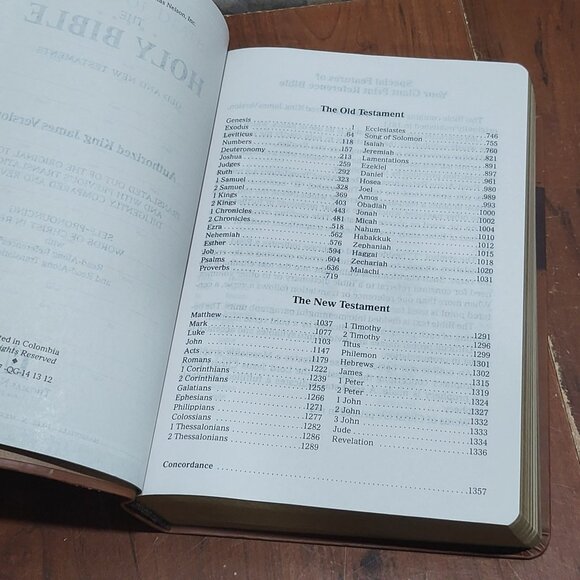 as Nelson, Inc.
THE
HOLY BIBLE
OLD AND NEW TESTAMENTS
Authorized King James Version
ted in Colombia
ghts Reserved
7 -QG-14 13 12
The Old Testament
Genesis 1
Exodus 64
Leviticus 118
Numbers 157
Deuteronomy 213
Joshua 259
Judges 292
Ruth 323
1 Samuel 328
2 Samuel 369
1 Kings 403
2 Kings 443
1 Chronicles 481
2 Chronicles 518
Ezra 562
Nehemiah 576
Esther 594
Job 604
Psalms 636
Proverbs 719
Ecclesiastes 746
Song of Solomon 755
Isaiah 760
Jeremiah 821
Lamentations 891
Ezekiel 897
Daniel 961
Hosea 980
Joel 989
Amos 993
Obadiah 1000
Jonah 1002
Micah 1004
Nahum 1010
Habakkuk 1012
Zephaniah 1015
Haggai 1018
Zechariah 1020
Malachi 1031
The New Testament
Matthew 1037
Mark 1077
Luke 1103
John 1147
Acts 1179
Romans 1222
1 Corinthians 1239
2 Corinthians 1255
Galatians 1266
Ephesians 1271
Philippians 1277
Colossians 1282
1 Thessalonians 1286
2 Thessalonians 1289
1 Timothy 1291
2 Timothy 1296
Titus 1299
Philemon 1301
Hebrews 1302
James 1315
1 Peter 1319
2 Peter 1324
1 John 1327
2 John 1332
3 John 1333
Jude 1334
Revelation 1336
Concordance 1357